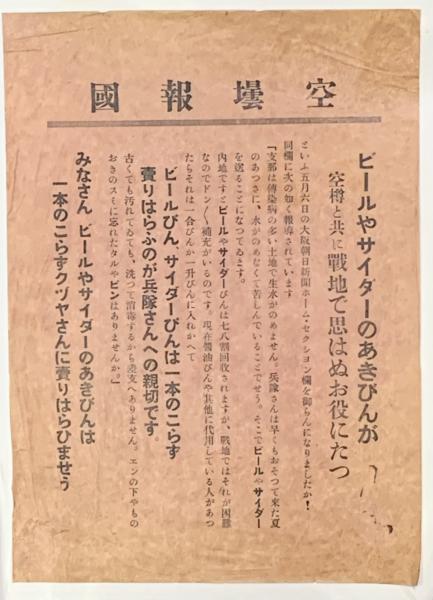 空壜報國
ビールやサイダーのあきびんが
空樽と共に戰地で思はぬお役にたつ
といふ五月六日の大阪朝日新聞ホーム・セクシヨン欄を御らんになりましたか！
同欄に次の如く報導されています
「支那は傳染病の多い土地で生水がのめません。兵隊さんは早くもおそつて來た夏
のあつさに、水がのめなくて苦しんでゐることでせう。そこでビールやサイダー
を送ることになつてゐます。
内地ですとビールやサイダーびんは七八割回收されますが、戰地ではそれが困難
なのでドン／＼補充がいるのです。現在醤油びんや其他に代用している人があつ
たらそれは一合びんか一升びんに入れかへて
ビールびん、サイダーびんは一本のこらず
賣りはらふのが兵隊さんへの親切です。
古くても汚れてゐても、洗つて消毒するから差支へありません。エンの下やもの
おきのスミに忘れたタルやビンはありませんか。」
みなさん ビールやサイダーのあきびんは
一本のこらずクヅヤさんに賣りはらひませう